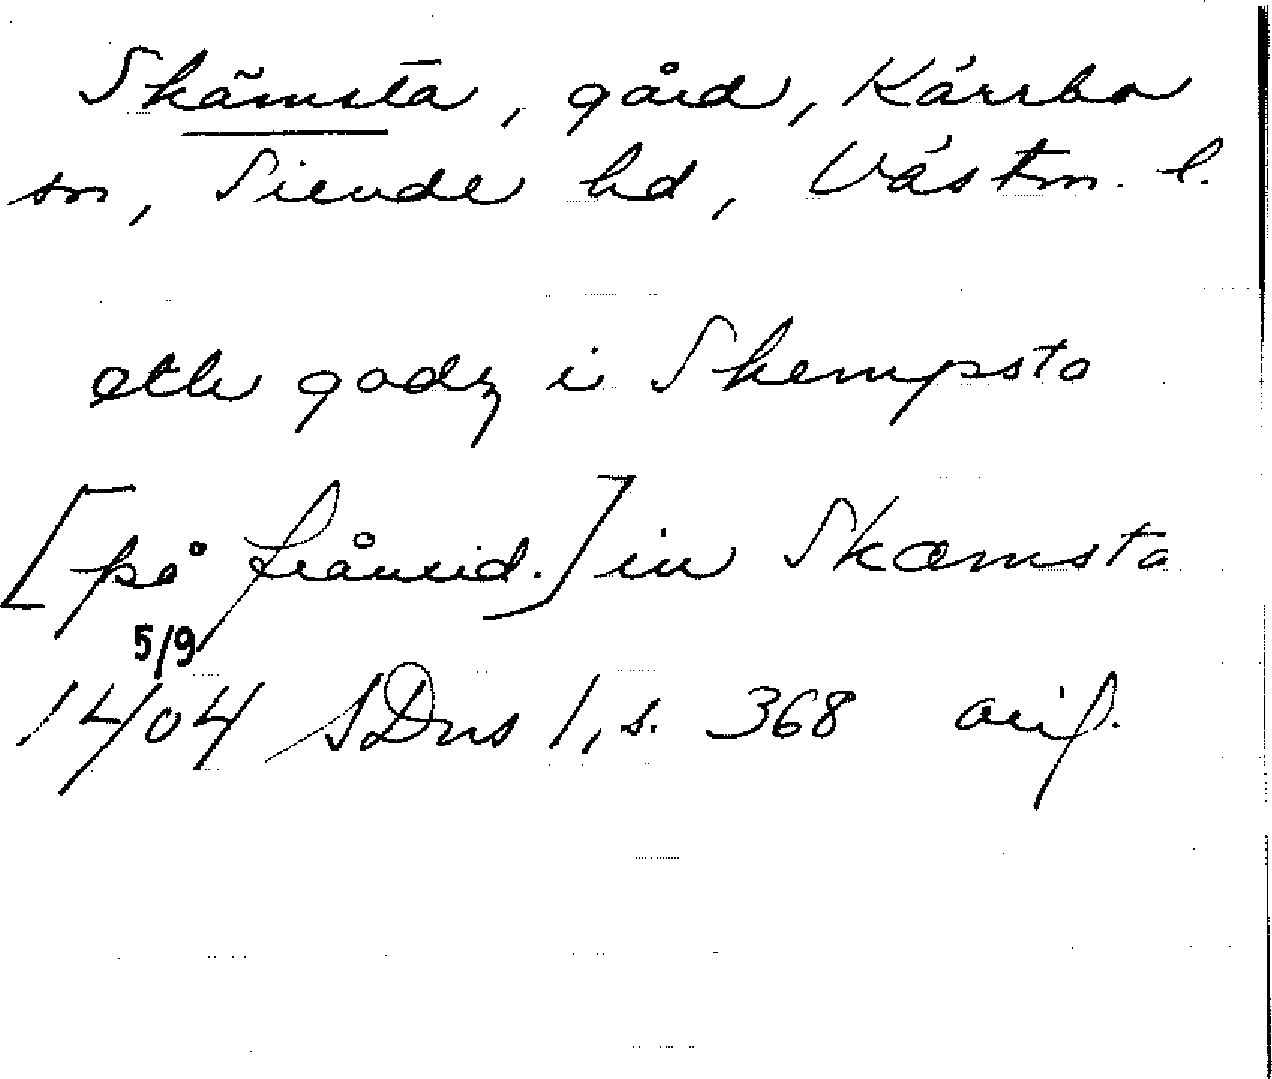 Skämsta, gård, Kärrbo
sn, Siende hd, Västm. l.
eth godz i Skempsta
[på frånsid.] in Skæmsta
5/9
1404 SDns 1, s. 368 avf.